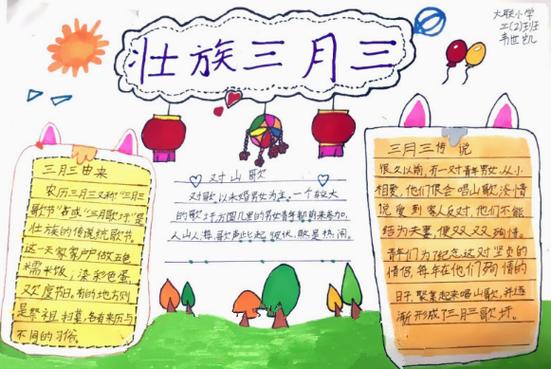 壮族三月三
大联小学
三月三由来
农历三月三又称“三月三
歌节”或“三月歌圩”是
壮族的传统歌节。
这一天家家户户做五色
糯米饭,染彩色蛋,
欢度节日。有的地方则
是祭祖扫墓,各有来历与
不同的习俗。
对山歌
对歌以未婚男女为主。一个较大
的歌圩,方圆几里的男女青年都前来参加。
人山人海,歌声此起彼伏,
三月三传说
很久以前,有一对青年男女,从小
相爱,他们很会唱山歌
爱到家人反对,他们不能
结为夫妻,便双双殉情。
青年们为了纪念这对坚贞的
情侣,每年在他们殉情的
日子,聚集起来唱山歌,并逐
渐形成了三月三歌圩。